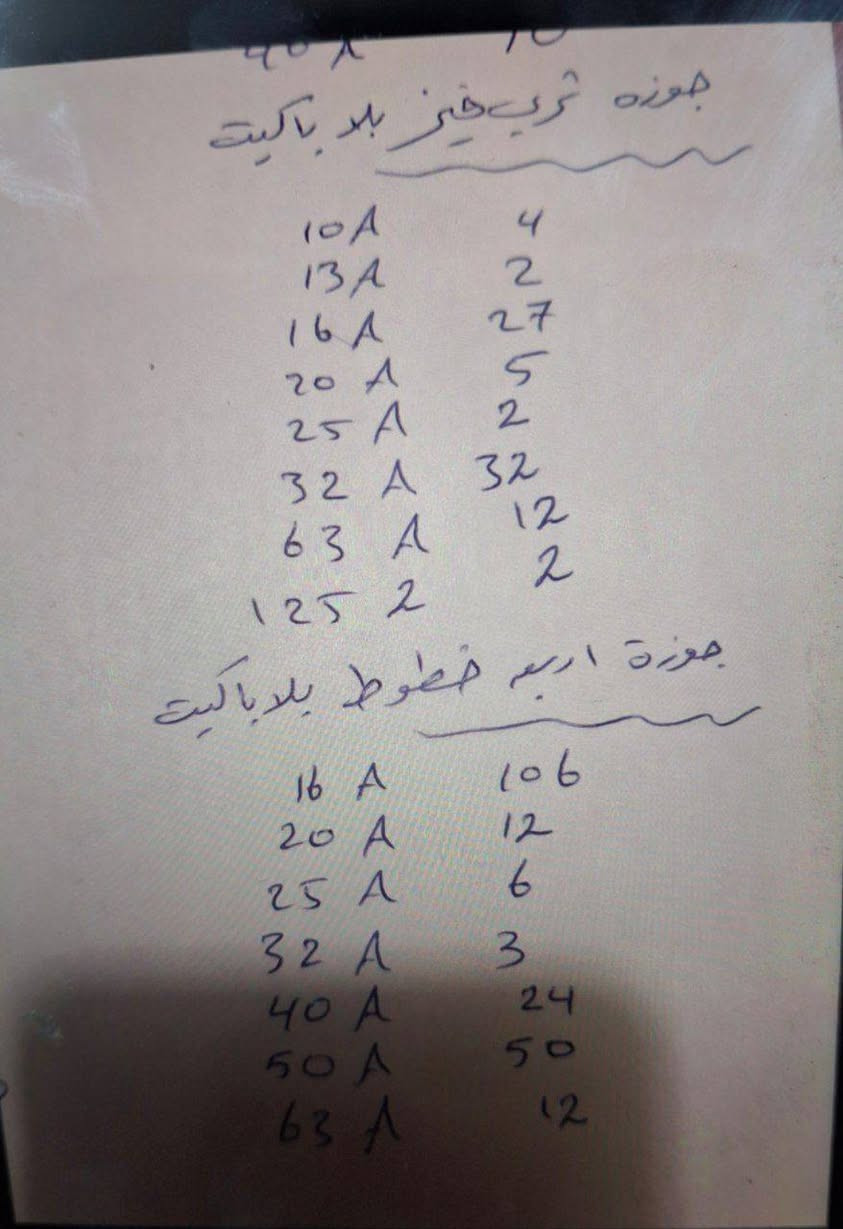 40 A 10
جوزه ثري فيز بلا باكيت
10 A 4
13 A 2
16 A 27
20 A 5
25 A 2
32 A 32
63 A 12
125 2 2
جوزة اربع خطوط بلا باكيت
16 A 106
20 A 12
25 A 6
32 A 3
40 A 24
50 A 50
63 A 12